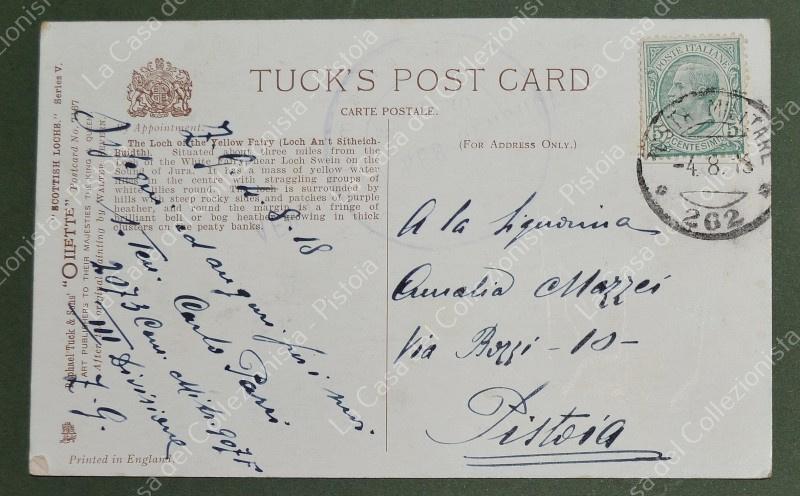 TUCK'S POST CARD
CARTE POSTALE.
(FOR ADDRESS ONLY.)
Appointment.
The Loch of the Yellow Fairy (Loch An't Sitheich-
Buidth). Situated about three miles from the
of the White Fairy, near Loch Swein on the
Sound of Jura. It has a mass of yellow water
lilies in the centre with straggling groups of
white lilies round. is surrounded by
hills with steep rocky sides, and patches of purple
heather, and round the margin is a fringe of
brilliant bell or bog heather growing in thick
clusters on the peaty banks.
Raphael Tuck & Sons' "OILETTE" "SCOTTISH LOCHS." Series V.
ART PUBLISHERS TO THEIR MAJESTIES THE KING & QUEEN
Postcard No.
After the original painting by
Printed in England.
4.8.18
ed auguri
Carlo
Divisione
Z. G.
POSTE ITALIANE
CENTESIMI
MILITARE
-4.8.18
262
A la Signorina
Amalia Mazzei
Via Bozzi - 10 -
Pistoia
La Casa del Collezionista - Pistoia